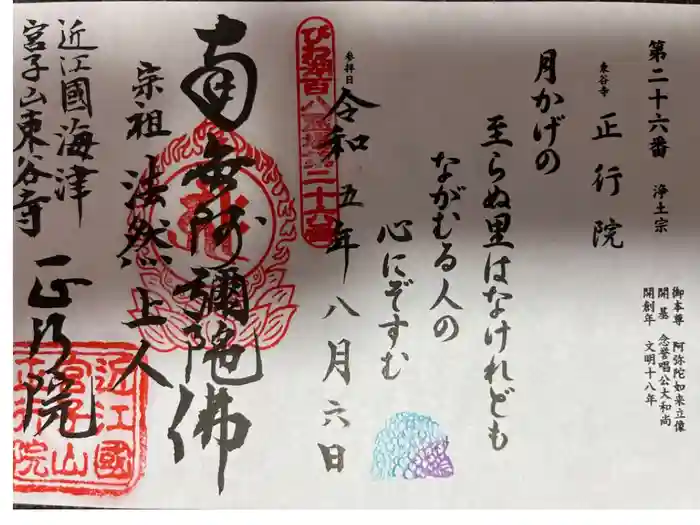 第二十六番 浄土宗
御本尊 阿弥陀如来立像
開基 念誉唱公大和尚
開創年 文明十八年
東谷寺 正行院
月かげの
至らぬ里はなけれども
ながむる人の
心にぞすむ
参拝日 令和五年八月六日
びわ湖百八霊場第二十六番
南無阿彌陀佛
宗祖 法然上人
近江國海津
宮子山東谷寺
正行院
近江國
宮子山
正行院